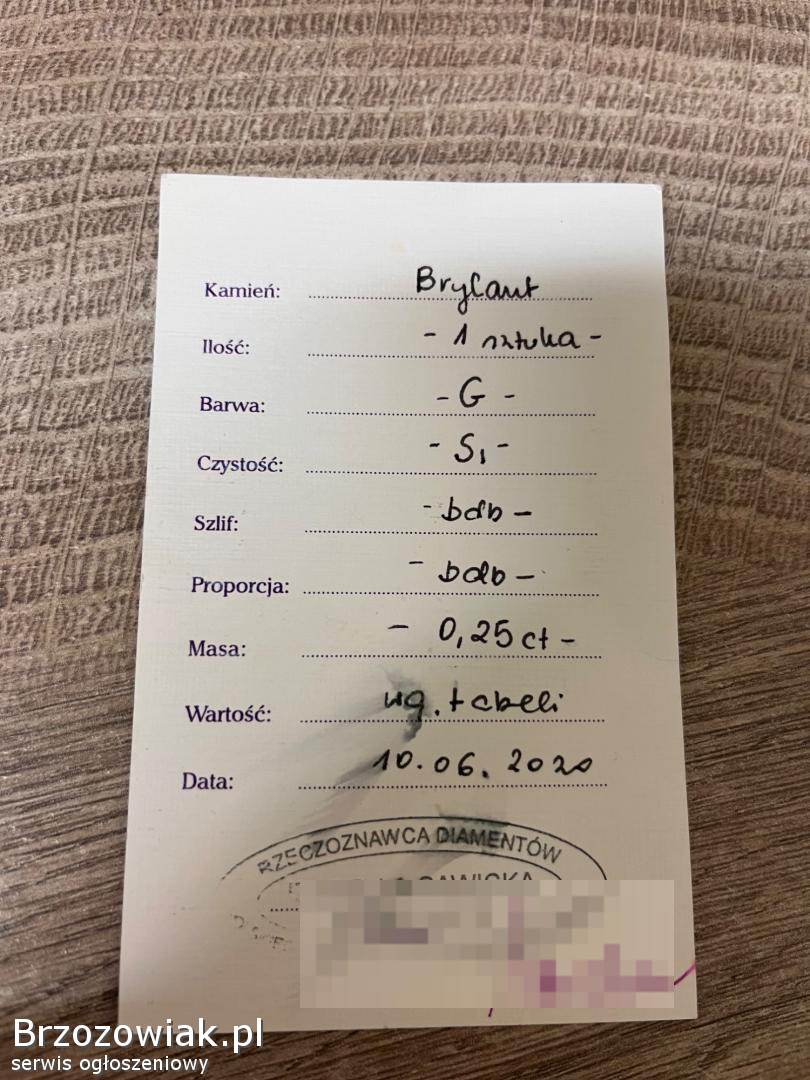 Kamień: Brylant
Ilość: - 1 sztuka -
Barwa: - G -
Czystość: - S1 -
Szlif: - bdb -
Proporcja: - bdb -
Masa: - 0,25 ct -
Wartość: wg. tabeli
Data: 10.06.2020
RZECZOZNAWCA DIAMENTÓW
Brzozowiak.pl
serwis ogłoszeniowy